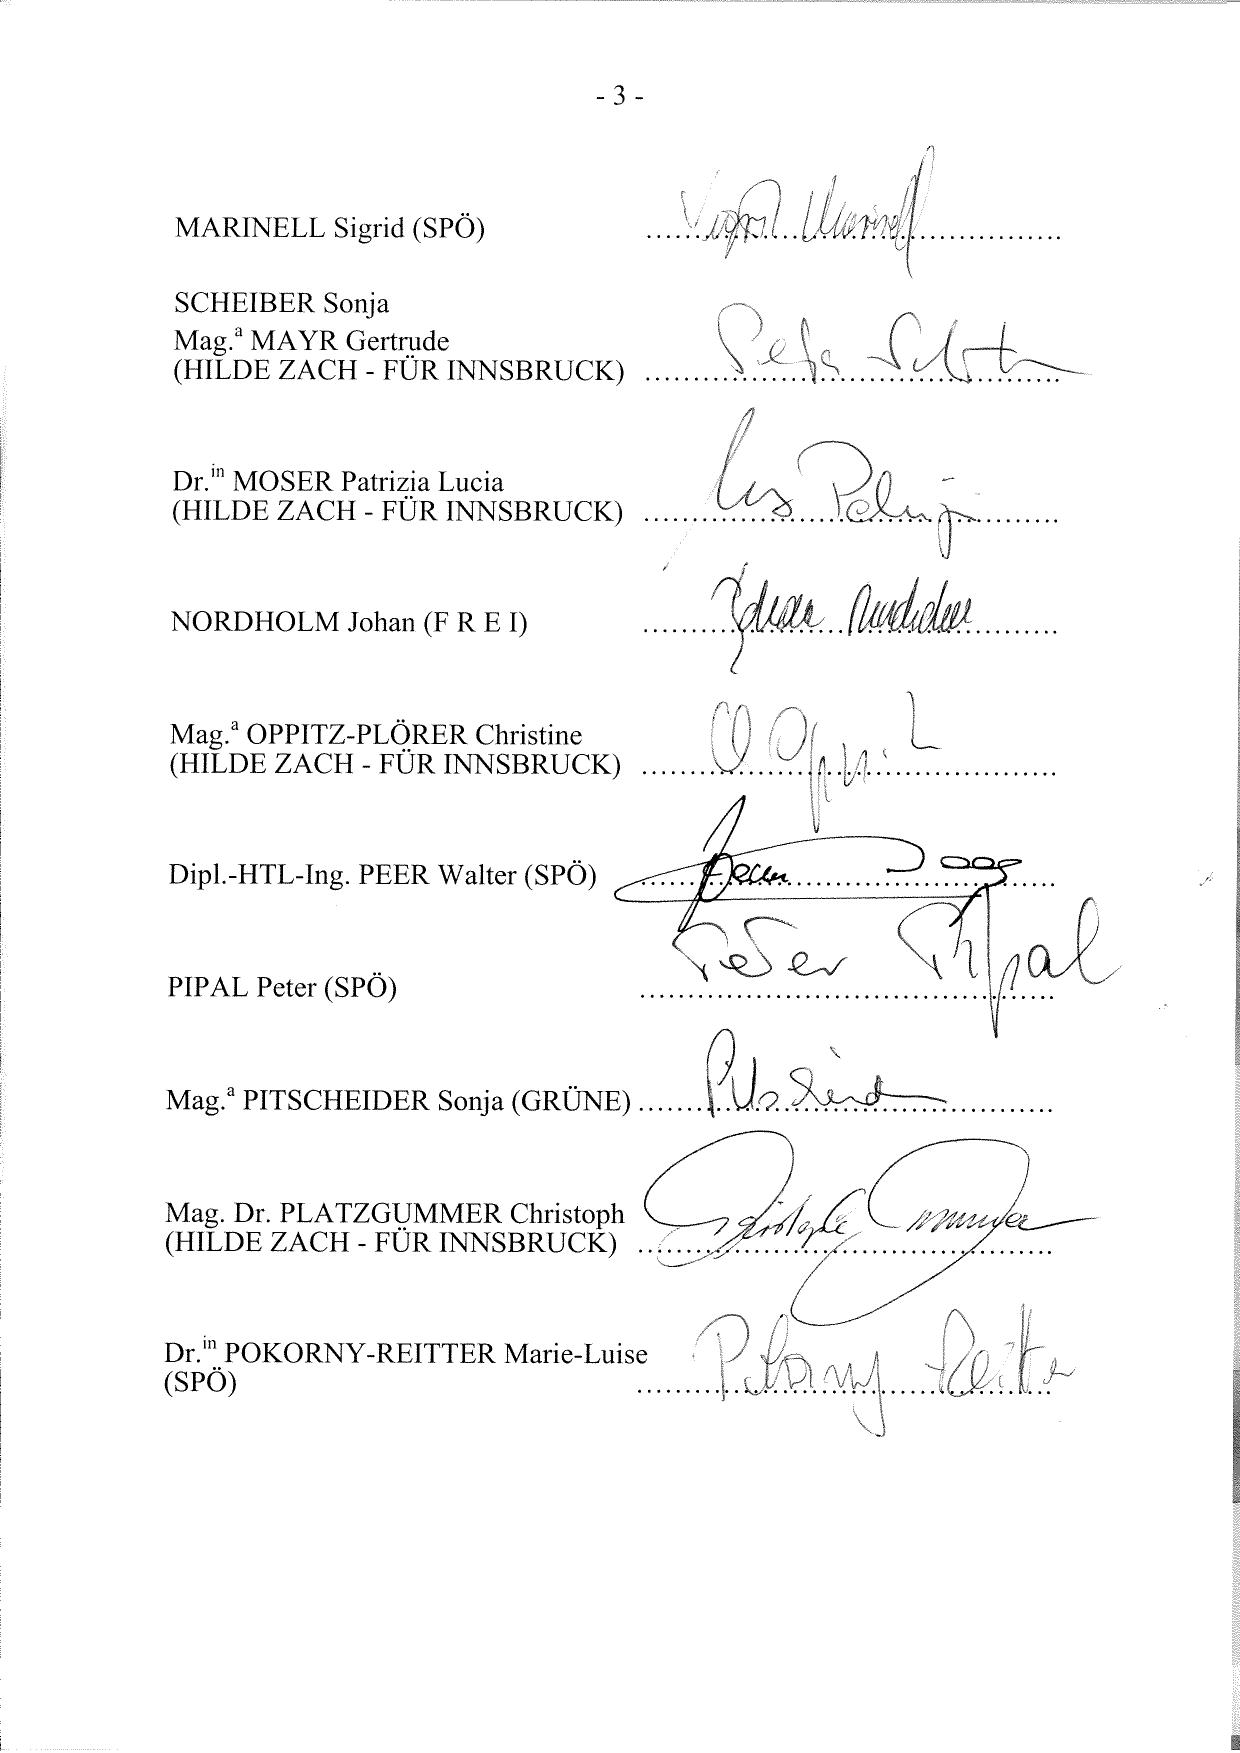 - 3 -
MARINELL Sigrid (SPÖ) ..........Sigrid Marinell..........
SCHEIBER Sonja
Mag.ª MAYR Gertrude
(HILDE ZACH - FÜR INNSBRUCK) ..........
Dr.ⁱⁿ MOSER Patrizia Lucia
(HILDE ZACH - FÜR INNSBRUCK) ..........
NORDHOLM Johan (F R E I) ..........
Mag.ª OPPITZ-PLÖRER Christine
(HILDE ZACH - FÜR INNSBRUCK) ..........
Dipl.-HTL-Ing. PEER Walter (SPÖ) ..........
Peter Pipal
PIPAL Peter (SPÖ) ..........
Mag.ª PITSCHEIDER Sonja (GRÜNE) ..........
Mag. Dr. PLATZGUMMER Christoph
(HILDE ZACH - FÜR INNSBRUCK) ..........
Dr.ⁱⁿ POKORNY-REITTER Marie-Luise Pokorny Reitter
(SPÖ) ..........